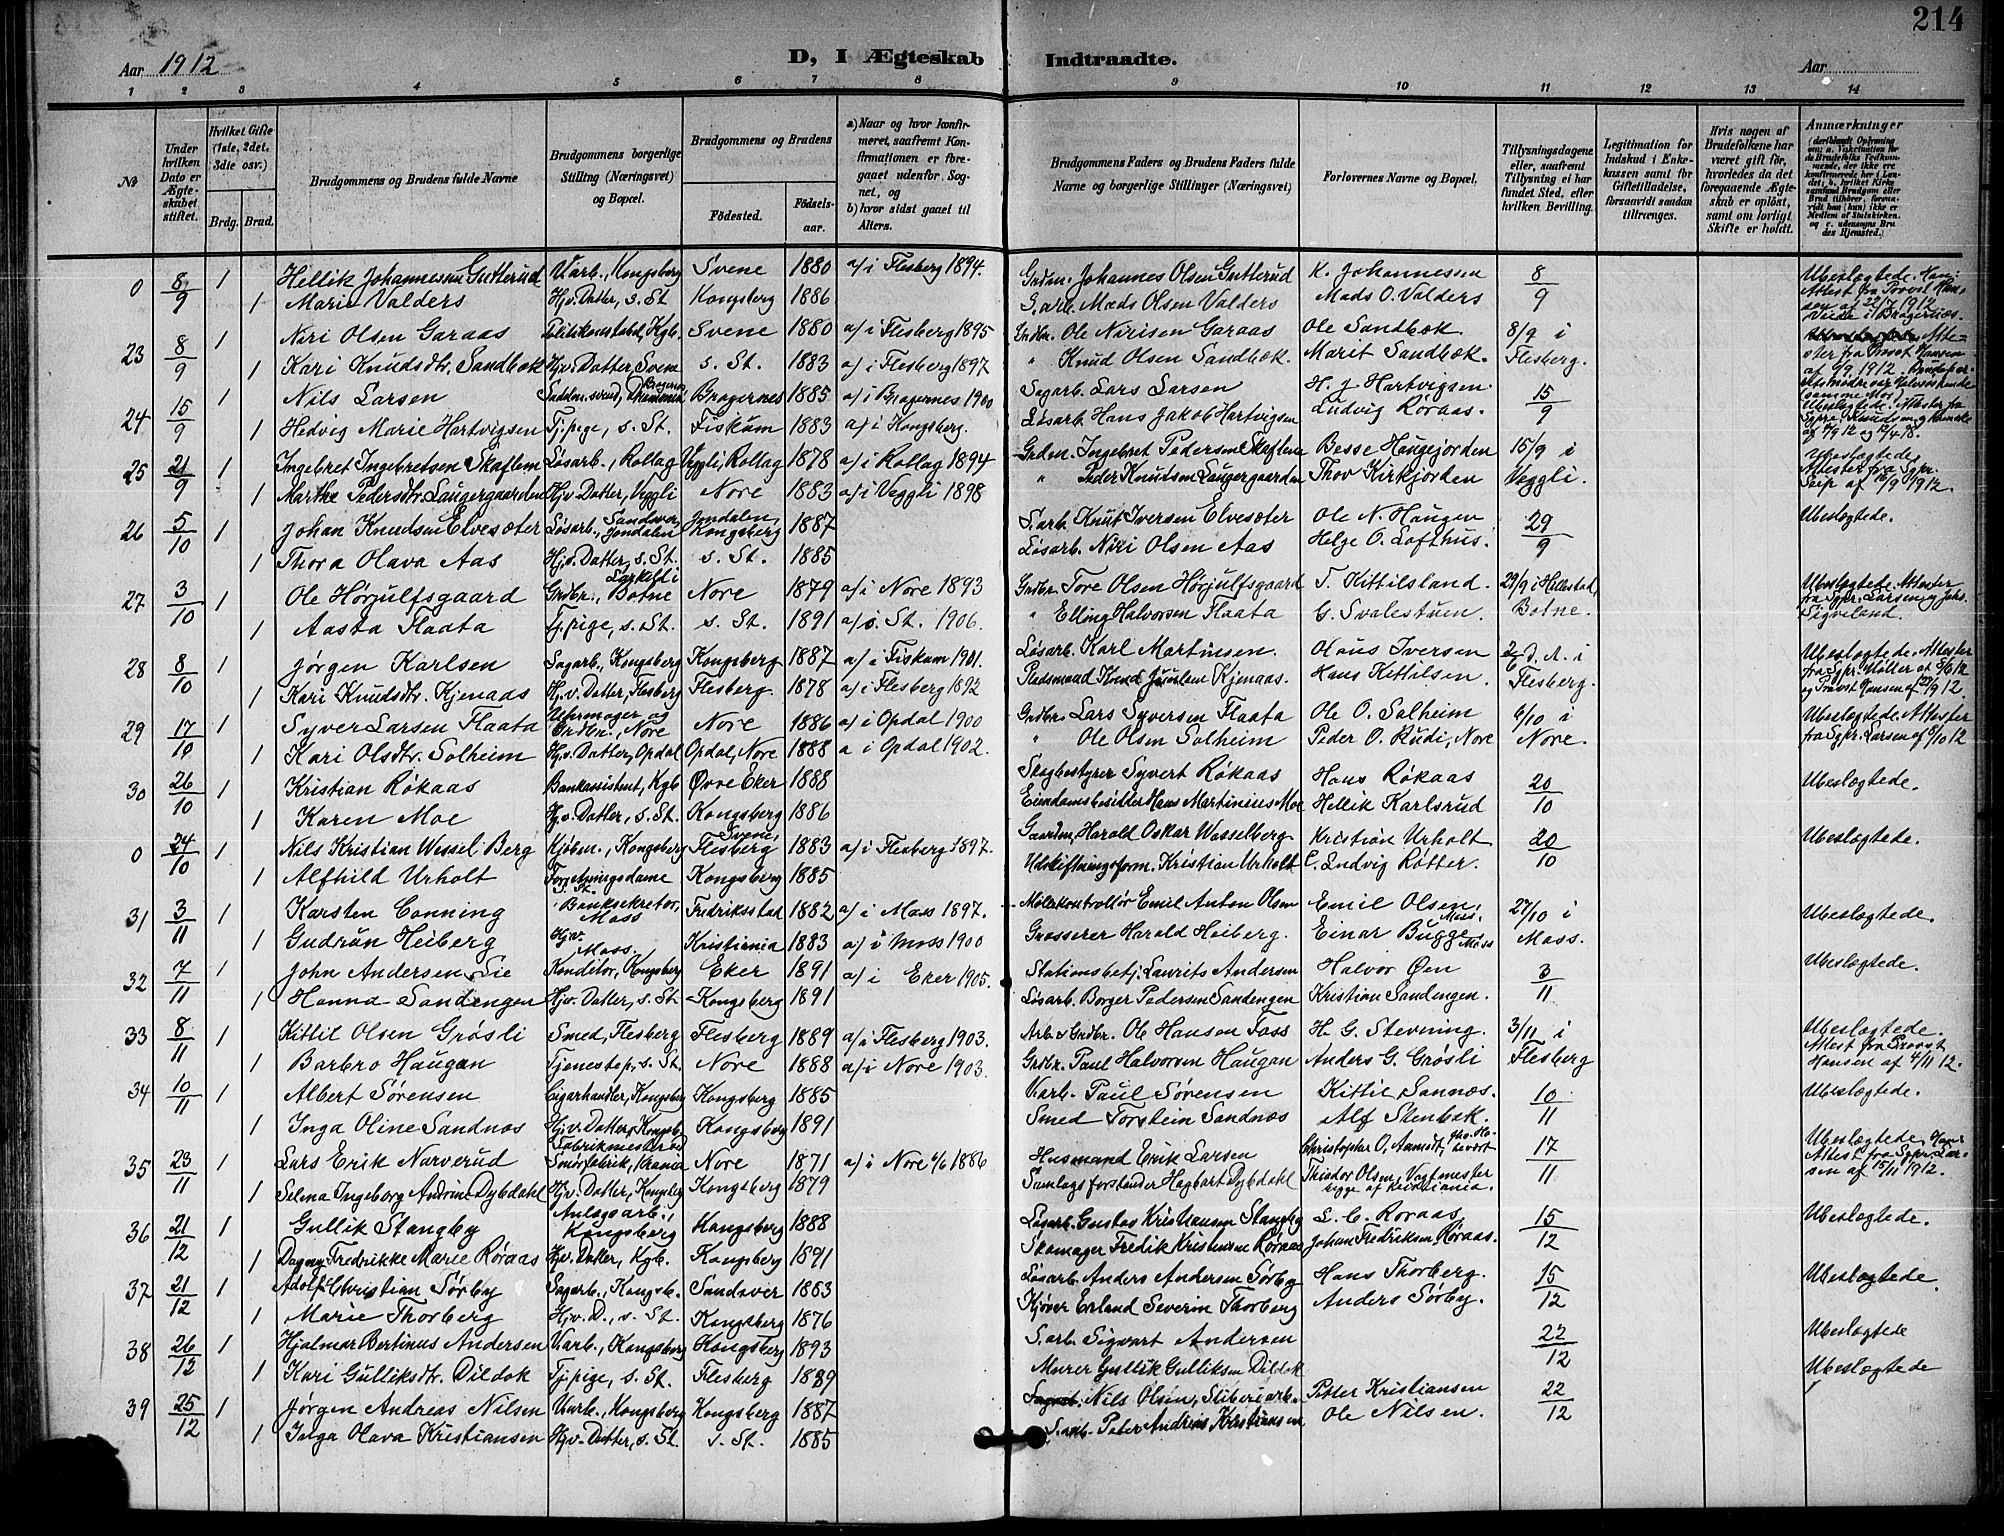 214
Aar 1912 D, I Ægteskab Indtraadte. Aar
1 2 3 4 5 6 7 8 9 10 11 12 13 14
No
Under hvilken Dato er Ægteskabet stiftet.
Hvilket Gifte (1ste, 2det, 3die osv.)
Brdg. Brud.
Brudgommens og Brudens fulde Navne
Brudgommens borgerlige Stilling (Næringsvei) og Bopæl.
Brudgommens og Brudens
Fødested. Fødselsaar.
a) Naar og hvor konfirmeret, saafremt Konfirmationen er foregaaet udenfor Sognet, og
b) hvor sidst gaaet til Alters.
Brudgommens Faders og Brudens Faders fulde Navne og borgerlige Stillinger (Næringsvei)
Forlovernes Navne og Bopæl.
Tillysningsdagene eller, saafremt Tillysning ei har fundet Sted, efter hvilken Bevilling.
Legitimation for Indskud i Enkekassen samt for Giftetilladelse, forsaavidt saadan tiltrænges.
Hvis nogen af Brudefolkene har været gift før, hvorledes da det foregaaende Ægteskab er opløst, samt om lovligt Skifte er holdt.
Anmærkninger
0 8/9 1 Hellik Johannessen Gutterud V.arb., Kongsberg Svene 1880 a/ i Flesberg 1894. Grdm. Johannes Olsen Gutterud K. Johannessen 8/9 Ubeslægtede.
1 Marie Valders Hj.v. Datter, s. St. Kongsberg 1886 S.arb. Mads Olsen Valders Mads O. Valders
23 8/9 1 Niri Olsen Garaas Politikonstabel, Kgb. Svene 1880 a/ i Flesberg 1895 Grdbr. Ole Nirisen Garaas Ole Sandbæk 8/9 i Flesberg.
1 Kari Knudsdtr. Sandbæk Hj.v. Datter, Svene s. St. 1883 a/ i Flesberg 1897 " Knud Olsen Sandbæk Marit Sandbæk.
24 15/9 1 Nils Larsen Sadelm.svend, Drammen Bragernes 1885 a/ i Bragernes 1900 Sagarb. Lars Larsen H. J. Hartvigsen 15/9
1 Hedvig Marie Hartvigsen Tj.pige, s. St. Fiskum 1883 a/ i Kongsberg. Løsarb. Hans Jakob Hartvigsen Ludvig Røraas.
25 21/9 1 Ingebret Ingebretsen Skaflem Løsarb., Rollag Veggli, Rollag 1878 a/ i Rollag 1894 Grdm. Ingebret Pedersen Skaflem Besse Haugejorden 15/9 i Veggli. Ubeslægtede. Attester fra Sgpr.
1 Marthe Pedersdtr. Laugergaarden Hj.v. Datter, Veggli Nore 1883 a/ i Veggli 1898 " Peder Knudsen Laugergaarden Thov Kirkjorden
26 5/10 1 Johan Knudsen Elvesæter Løsarb., Sandsvær, Jondalen Jondalen, Kongsberg 1887 S.arb. Knut Iversen Elvesæter Ole N. Haugen 29/9 Ubeslægtede.
1 Thora Olava Aas Hj.v. Datter, s. St. s. St. 1885 Løsarb. Niri Olsen Aas Helge O. Lofthus.
27 3/10 1 Ole Hørjulfsgaard Grdbr., Botne Nore 1879 a/ i Nore 1893 Grdbr. Tore Olsen Hørjulfsgaard T. Kittilsland. 29/9 i Hillestad, Botne. Ubeslægtede. Attester
1 Aasta Flaata Tj.pige, s. St. s. St. 1891 a/ s. St. 1906. " Elling Halvorsen Flaata G. Svalestuen
28 8/10 1 Jørgen Karlsen Sagarb., Kongsberg Kongsberg 1887 a/ i Fiskum 1901. Løsarb. Karl Martinsen. Hans Iversen Flesberg. Ubeslægtede. Attester
1 Kari Knudsdtr. Kjenaas Hj.v. Datter, Flesberg Flesberg 1878 a/ i Flesberg 1892 Pladsmand Knud Kjenaas. Hans Kittilsen.
29 17/10 1 Syver Larsen Flaata Uhrmager og Grdbr., Nore Nore 1886 a/ i Opdal 1900 Grdbr. Lars Syversen Flaata Ole O. Solheim 6/10 i Nore. Ubeslægtede. Attester fra Sgpr. Larsen af 6/10 12
1 Kari Olsdtr. Solheim Hj.v. Datter, Opdal Opdal, Nore 1888 a i Opdal 1902. " Ole Olsen Solheim Peder O. Rudi, Nore
30 26/10 1 Kristian Røkaas Bankassistent, Kgb Øvre Eker 1888 Skogbestyrer Syvert Røkaas Hans Røkaas 20/10 Ubeslægtede.
1 Karen Moe Hj.v. Datter, s. St. Kongsberg 1886 Eiendomsbesidder Hans Martinius Moe Hellik Karlsrud
0 24/10 1 Nils Kristian Wessel Berg Kjøbm., Kongsberg Svene, Flesberg 1883 a/ i Flesberg 1897. Gaardm. Harald Oskar Wesselberg Kristian Urholt 20/10 Ubeslægtede.
1 Alfhild Urholt Forretningsdame s. St. Kongsberg 1885 Udskiftningsform. Kristian Urholt C. Ludvig Røtter.
31 3/11 1 Karsten Conning Banksekretær, Moss Fredriksstad 1882 a/ i Moss 1897. Møllekontrollør Emil Anton Olsen Emil Olsen 27/10 i Moss. Ubeslægtede.
1 Gudrun Heiberg Hj.v. Moss. Kristiania 1883 a/ i Moss 1900 Grosserer Harald Heiberg. Einar Bugge Moss
32 7/11 1 John Andersen Sie Konditor, Kongsberg Eker 1891 a/ i Eker 1905. Stationsbetj. Laurits Andersen Halvor Øen 3/11 Ubeslægtede.
1 Hanna Sandengen Hj.v. Datter, s. St. Kongsberg 1891 Løsarb. Borger Pedersen Sandengen Kristian Sandengen.
33 8/11 1 Kittil Olsen Grøsli Smed, Flesberg Flesberg 1889 a/ i Flesberg 1903. Arb. & Grdbr. Ole Hansen Foss H. G. Stevning. 3/11 i Flesberg Ubeslægtede. Attest fra Provst Hansen af 4/11 12.
1 Barbro Haugan Tjenestep., s. St. Nore 1888 a/ i Nore 1903. Grdbr. Paul Halvorsen Haugan Anders G. Grøsli
34 10/11 1 Albert Sørensen Cigarhandler, Kongsberg Kongsberg 1885 V.arb. Paul Sørensen Kittil Sannæs. 10/11 Ubeslægtede.
1 Inga Oline Sandnæs Hj.v. Datter, Kongsb. Kongsberg 1891 Smed Torstein Sandnæs Alf Stenbæk.
35 23/11 1 Lars Erik Narverud Fabrikmester ved Smørfabrik, Krania Nore 1871 a/ i Nore 4/6 1886 Husmand Erik Larsen Christopher O. Aamodt, 17/11 Ubeslægtede. Attest fra Sgpr. Larsen af 15/11 1912.
1 Selma Ingeborg Andrine Dybdahl Hj.v. Datter, Kongsberg Kongsberg 1879 Samlagsforstander Hagbart Dybdahl Theodor Olsen, Vagtmester begge af Kristiania.
36 21/12 1 Gullik Stangby Anlægsarb., Kongsberg Kongsberg 1888 Løsarb. Gustav Kristiansen Stangby L. C. Røraas 15/12 Ubeslægtede.
1 Dagny Fredrikke Marie Røraas Hj.v. Datter, Kgb. Kongsberg 1891 Skomager Fredik Kristensen Røraas Johan Fredriksen Røraas.
37 21/12 1 Adolf Christian Sørby Sagarb., Kongsb. Sandsvær 1883 Løsarb. Anders Andersen Sørby Hans Thorberg. 15/12 Ubeslægtede.
1 Marie Thorberg Hj.v. D., s. St. Kongsberg 1876 Kjører Erland Severin Thorberg Anders Sørby.
38 26/12 1 Hjalmar Bertinus Andersen V.arb., Kongsberg Kongsberg 1893 S.arb. Sigvart Andersen 22/12 Ubeslægtede
1 Kari Gulliksdtr. Dildok Tj.pige, s. St. Flesberg 1889 Murer Gullik Gulliksen Dildok Ubeslægtede
39 25/12 1 Jørgen Andreas Nilsen V.arb., Kongsberg Kongsberg 1887 Nils Olsen, Sliberiarb. Petter Kristiansen 22/12
1 Inga Olava Kristiansen Hj.v. Datter, s. St. s. St. 1885 S.arb. Peter Andreas Kristiansen Ole Nilsen.